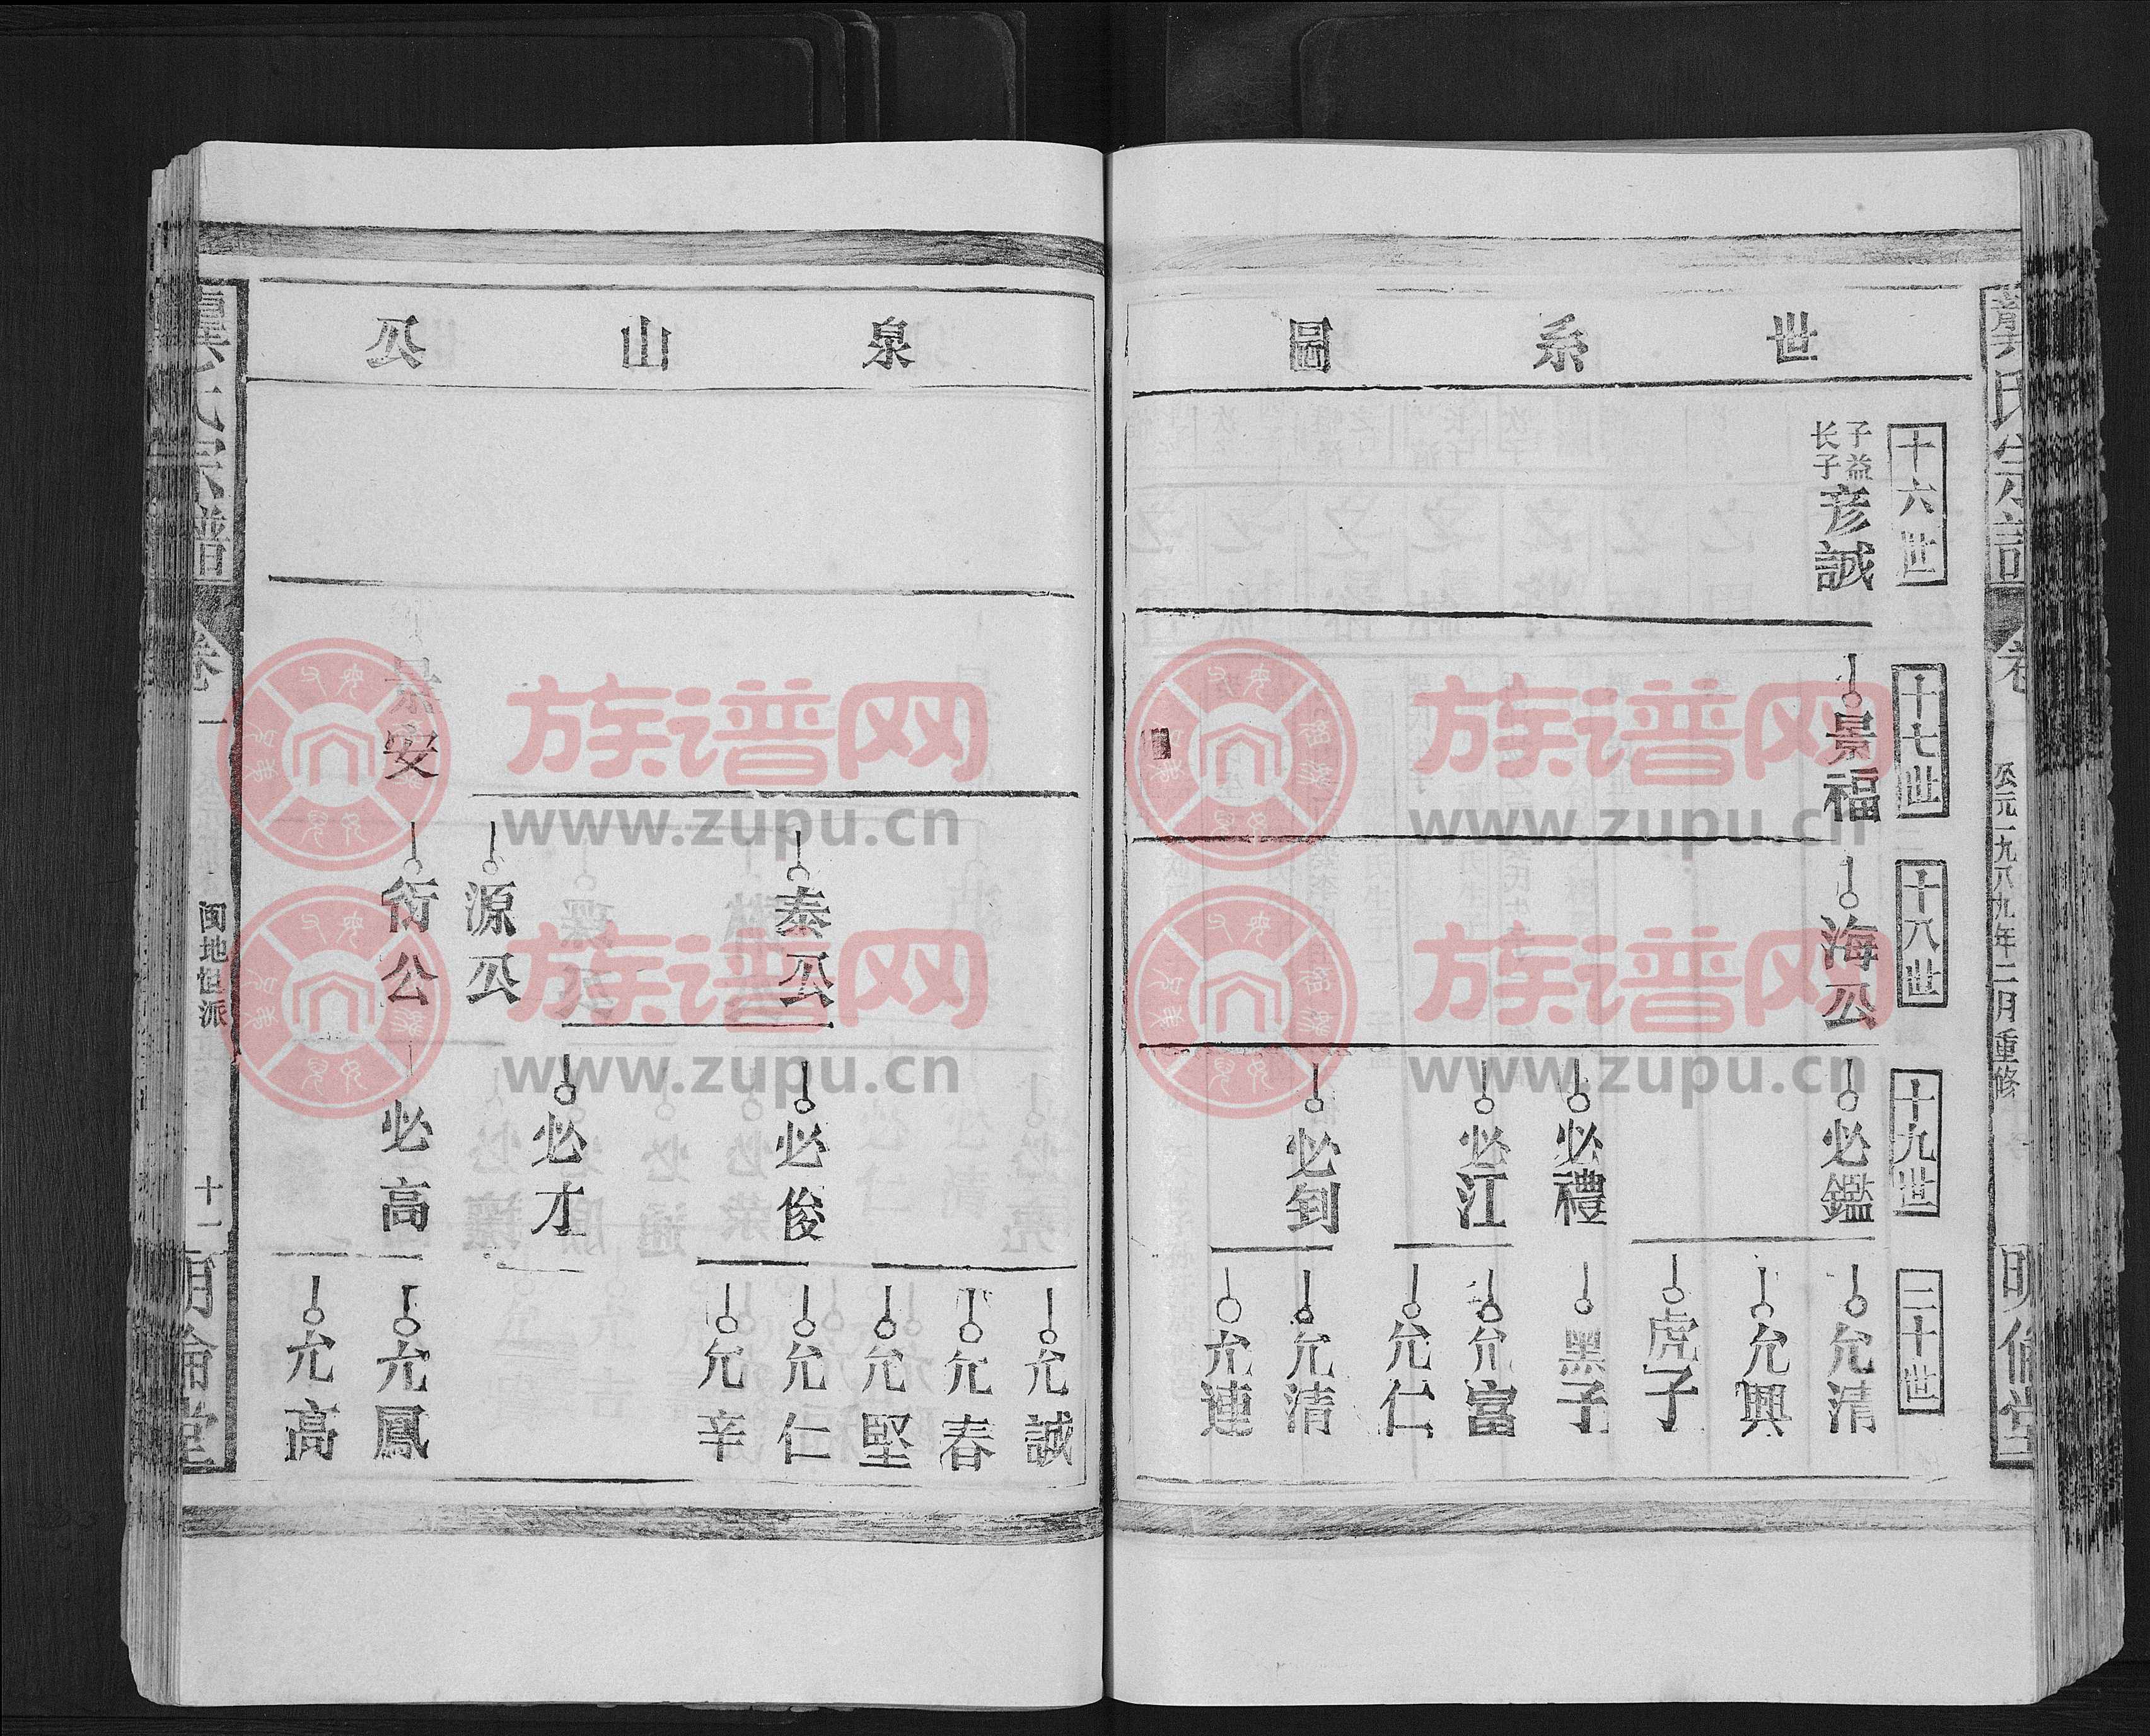 龔氏宗譜
卷
公元一九八九年二月重修
明倫堂
世系圖
十六世
子益
长子
彦誠
十七世
景福
十八世
海公
十九世
必鑑
必禮
必江
必釗
二十世
允清
允興
虎子
黑子
允富
允仁
允清
允連
泉山公
景安
泰公
源公
衍公
必俊
必才
必高
允誠
允春
允堅
允仁
允辛
允鳳
允高
龔氏宗譜
卷一
闽地恒派
十一
明倫堂
族谱网
www.zupu.cn
族谱网
www.zupu.cn
族谱网
www.zupu.cn
族谱网
www.zupu.cn